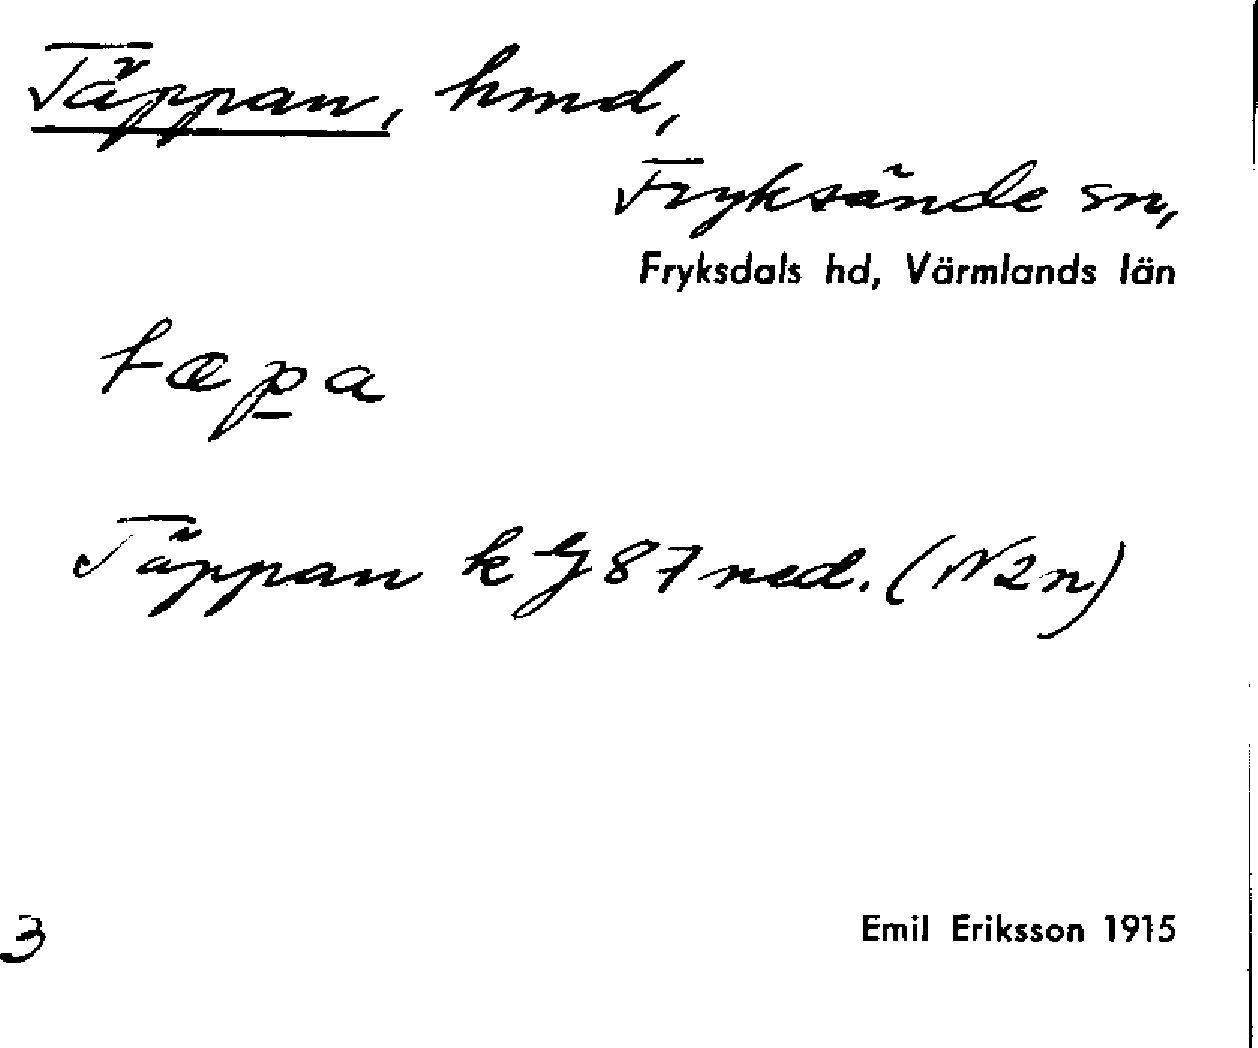 Täppan, hmd,
Fryksände sn,
Fryksdals hd, Värmlands län
tæpa
Täppan k 87 ned. (N2n)
Emil Eriksson 1915
3